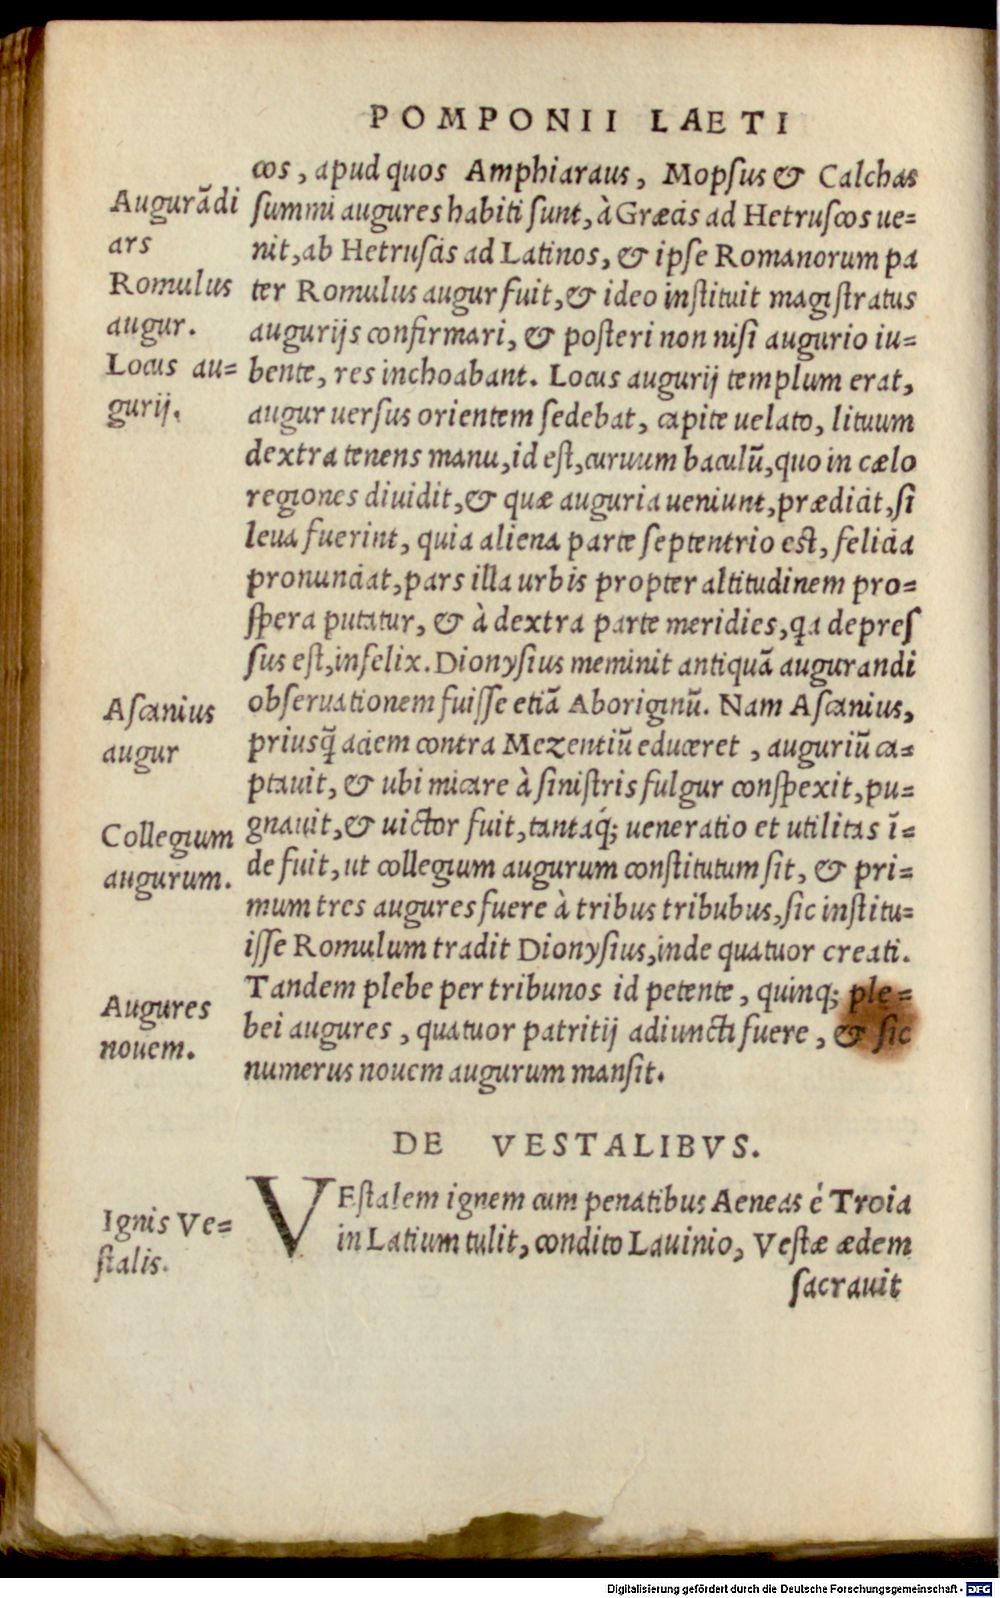 POMPONII LAETI
cos, apud quos Amphiaraus, Mopſus & Calchas
ſummi augures habiti ſunt, à Græcis ad Hetruſcos ue-
nit, ab Hetruſcis ad Latinos, & ipſe Romanorum pa
ter Romulus augur fuit, & ideo inſtituit magiſtratus
augurijs confirmari, & poſteri non niſi augurio iu-
bente, res inchoabant. Locus augurij templum erat,
augur uerſus orientem ſedebat, capite uelato, lituum
dextra tenens manu, id eſt, curuum baculū, quo in cælo
regiones diuidit, & quæ auguria ueniunt, prædicit, ſi
leua fuerint, quia aliena parte ſeptentrio eſt, felicia
pronunciat, pars illa urbis propter altitudinem pro-
ſpera putatur, & à dextra parte meridies, qa depreſ
ſus eſt, infelix. Dionyſius meminit antiquā augurandi
obſeruationem fuiſſe etiā Aboriginū. Nam Aſcanius,
priusq̃ aciem contra Mezentiū educeret, auguriū ca-
ptauit, & ubi micare à ſiniſtris fulgur conſpexit, pu-
gnauit, & uictor fuit, tantaq́; ueneratio et utilitas ī-
de fuit, ut collegium augurum conſtitutum ſit, & pri-
mum tres augures fuere à tribus tribubus, ſic inſtitu-
iſſe Romulum tradit Dionyſius, inde quatuor creati.
Tandem plebe per tribunos id petente, quinq; ple-
bei augures, quatuor patritij adiuncti fuere, & ſic
numerus nouem augurum manſit.
Augurādi
ars
Romulus
augur.
Locus au-
gurij.
Aſcanius
augur
Collegium
augurum.
Augures
nouem.
DE VESTALIBVS.
VEſtalem ignem cum penatibus Aeneas è Troia
in Latium tulit, condito Lauinio, Veſtæ ædem
ſacrauit
Ignis Ve-
ſtalis.
Digitalisierung gefördert durch die Deutsche Forschungsgemeinschaft - DFG